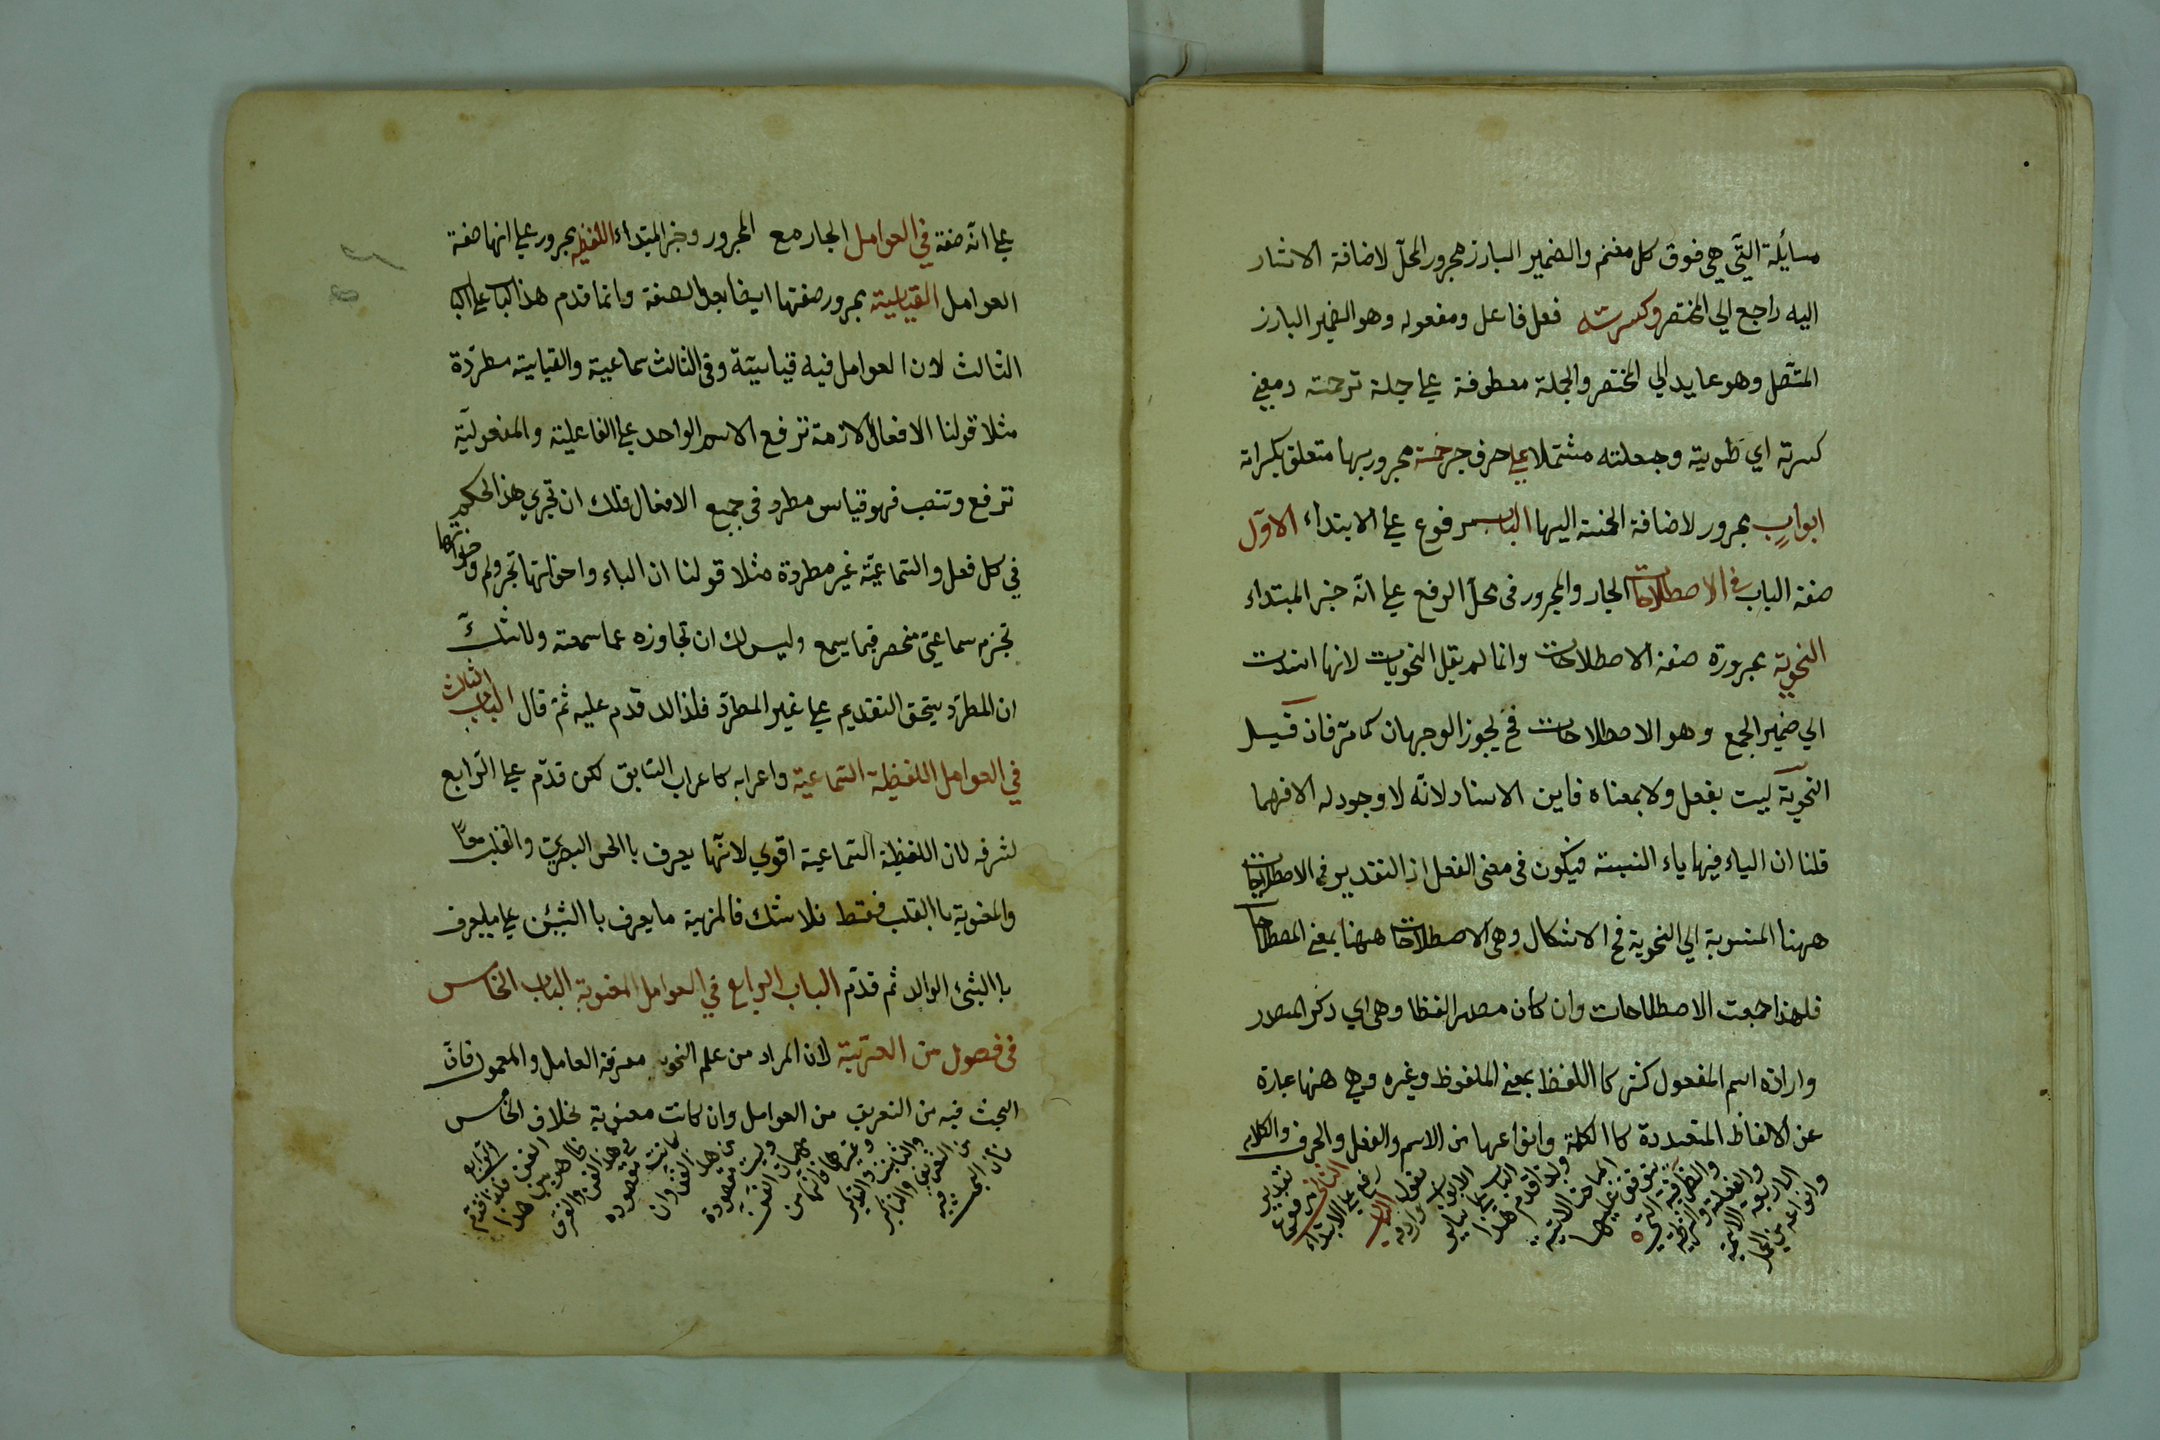 مسايله التي هي فوق كل مغنم والضمير البارز مجرور المحل لاضافة الاثار
اليه راجع الي المختصر وكسرته فعل فاعل ومفعوله وهو الضمير البارز
المتصل وهو عايد الي المختصر والجملة معطوفة علي جملة ترجمته ومعني
كسرته اي طويته وجعلته مشتملا علي حرف جر خمسة مجرور بها متعلق بكسرته
ابواب مجرور لاضافة الخمسة اليها الباب مرفوع علي الابتداء الاول
صفة الباب في الاصطلاحات الجار والمجرور في محل الرفع علي انه خبر المبتداء
النحوية مجرورة صفة الاصطلاحات وانما لم يقل النحويات لانها اسندت
الي ضمير الجمع وهو الاصطلاحات فح يجوز الوجهان كما مر فان قيل
النحوية ليست بفعل ولا بمعناه فاين الاسناد لانه لا وجود له الا فيهما
قلنا ان الياء فيها ياء النسبة فيكون في معني الفعل اذ التقدير في الاصطلاحات
ههنا المنسوبة الي النحوية فح الاشكال وهي الاصطلاحات ههنا بمعني المصطلحات
فلهذا جمعت الاصطلاحات وان كان مصدر الفظا وهي اي ذكر المصدر
وارادة اسم المفعول كثير كا اللفظ بمعني الملفوظ وغيره وهي ههنا عبارة
عن الالفاظ المتعددة كا الكلمة وانواعها من الاسم والفعل والحرف والكلام
وانواعه من الجمل
الاربعة الاسمية
والفعلية والشرطية
والظرفية التي
يتوقف عليها
المباحث الاتية
ولذا قدم هذا
الباب علي باقي
الابواب
بقوله الباب
رفع علي الابتداء
الثاني مرفوع
علي انه صفة في العوامل الجار مع المجرور وخبر المبتداء اللفظية مجرور علي انها صفة
العوامل القياسية مجرور صفتها ايضا بعد الصفة وانما قدم هذا الباب علي الباب
الثالث لان العوامل فيه قياسية وفي الثالث سماعية والقياسية مطردة
مثلا قولنا الافعال الازمة ترفع الاسم الواحد علي الفاعلية والمفعولية
ترفع وتنصب فهو قياس مطرد في جميع الافعال فلك ان تجري هذا الحكم
في كل فعل والسماعية غير مطردة مثلا قولنا ان الباء واخواتها تجر ولم واخواتها
تجزم سماعي منحصر فيما يسمع وليس لك ان تجاوزه عما سمعته ولا شك
ان المطرد يستحق التقديم علي غير المطرد فلذالك قدم عليه ثم قال الباب الثالث
في العوامل اللفظية السماعية واعرابه كاعراب السابق لكن قدم علي الرابع
لشرفه لان اللفظية السماعية اقوي لانها يعرف با الحس البصري والقلب معا
والمعنوية با القلب فقط فلا شك فالمزية ما يعرف با الشيئين علي ما يعرف
با الشئ الواحد ثم قدم الباب الرابع في العوامل المعنوية الباب الخامس
في فصول من العربية لان المراد من علم النحو معرفة العامل والمعمول فان
البحث فيه من التعريف من العوامل وان كانت معنوية بخلاف الخامس
فان البحث فيه
من التعريف والتنكير
والتانيث والتذكير
وغيرها فانها من
مهمات الفن
وليست مقصودة
من هذا الفن وان
كانت مقصودة
في هذا الفن والفرق
ظاهر بين هذا
الفن فلذا قدم
الرابع